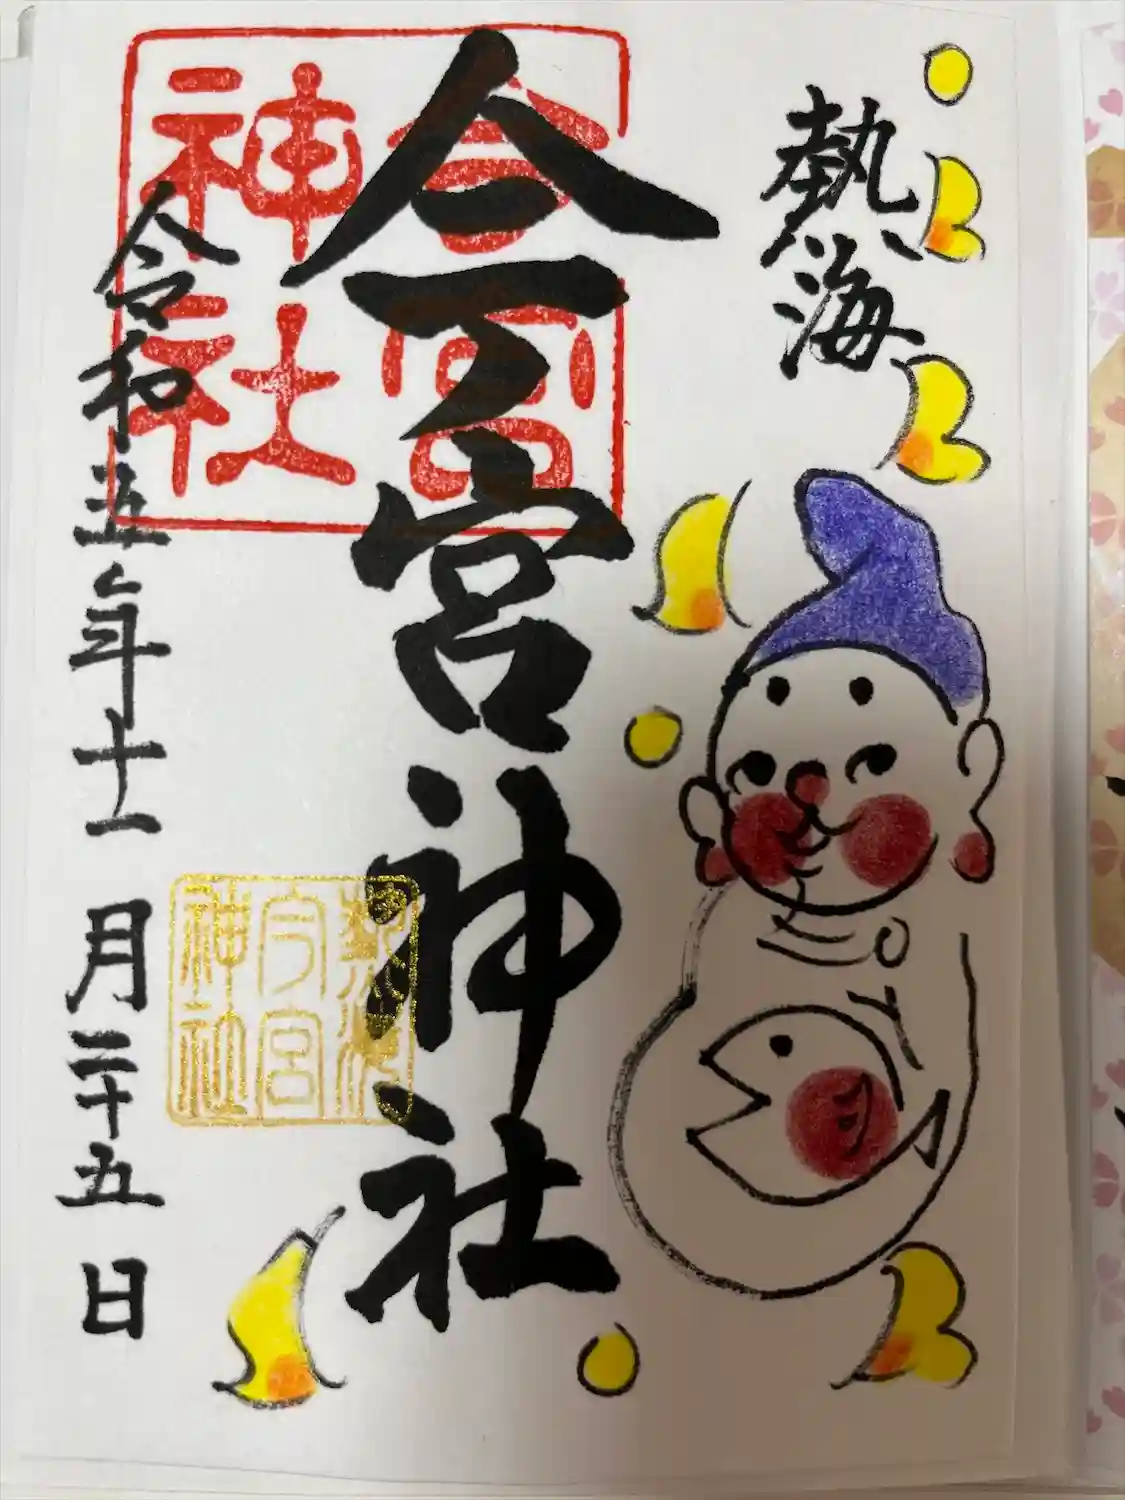 熱海
今宮神社
令和五年十一月二十五日
今宮
神社
熱海
今宮
神社